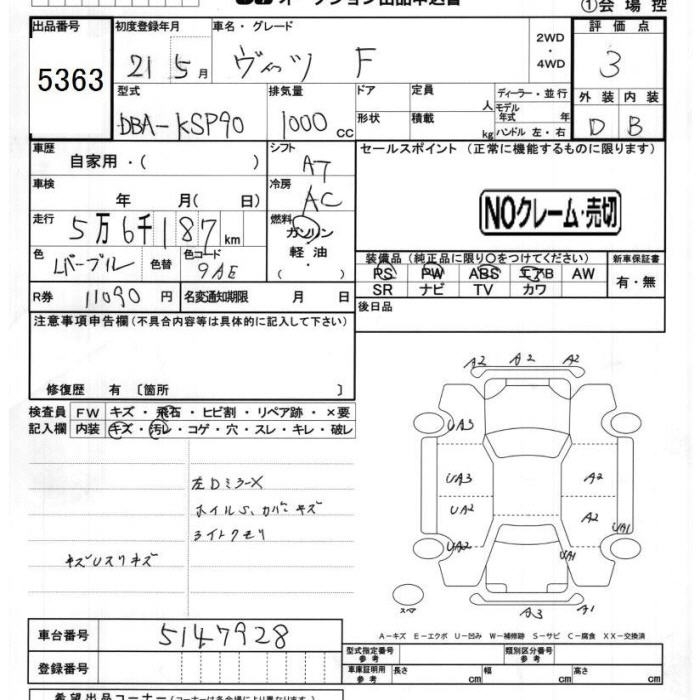 ①会 場 控
出品番号
5363
初度登録年月
21 5月
車名・グレード
ヴィッツ F
2WD
・
4WD
評 価 点
3
型式
DBA-KSP90
排気量
1000 cc
ドア
定員
人
形状
積載
kg
ディーラー・並行
モデル
年式 年
ハンドル 左・右
外 装 内 装
D B
車歴
自家用・( )
シフト
AT
車検
年 月( 日)
冷房
AC
走行
5万6千187km
燃料
ガソリン
・
軽 油
( ・ )
色
Lパープル
色替
色コード
9AE
R券
11090 円
名変通知期限 月 日
セールスポイント (正常に機能するものに限ります)
NOクレーム・売切
装備品 (純正品に限り○をつけてください)
PS PW ABS エアB AW
SR ナビ TV カワ
新車保証書
有・無
後日品
注意事項申告欄(不具合内容等は具体的に記入して下さい)
修復歴 有 〔箇所 〕
検査員
記入欄
FW キズ ・ 飛石 ・ ヒビ割 ・ リペア跡 ・ ×要
内装 キズ・汚レ・コゲ・穴・スレ・キレ・破レ
左DミラーX
ホイルS、カバーキズ
ライトクモリ
キズUスリキズ
A2 A2 A2
UA3
UA3 A2
UA2 A2
UA2 UA1 UA1
A3 A1
スペア
A-キズ E-エクボ U-凹み W-補修跡 S-サビ C-腐食 XX-交換済
車台番号
5147928
登録番号
型式指定番号
参考
類別区分番号
参考
車庫証明用
参考
長さ cm
幅 cm
高さ cm
希望出品コーナー